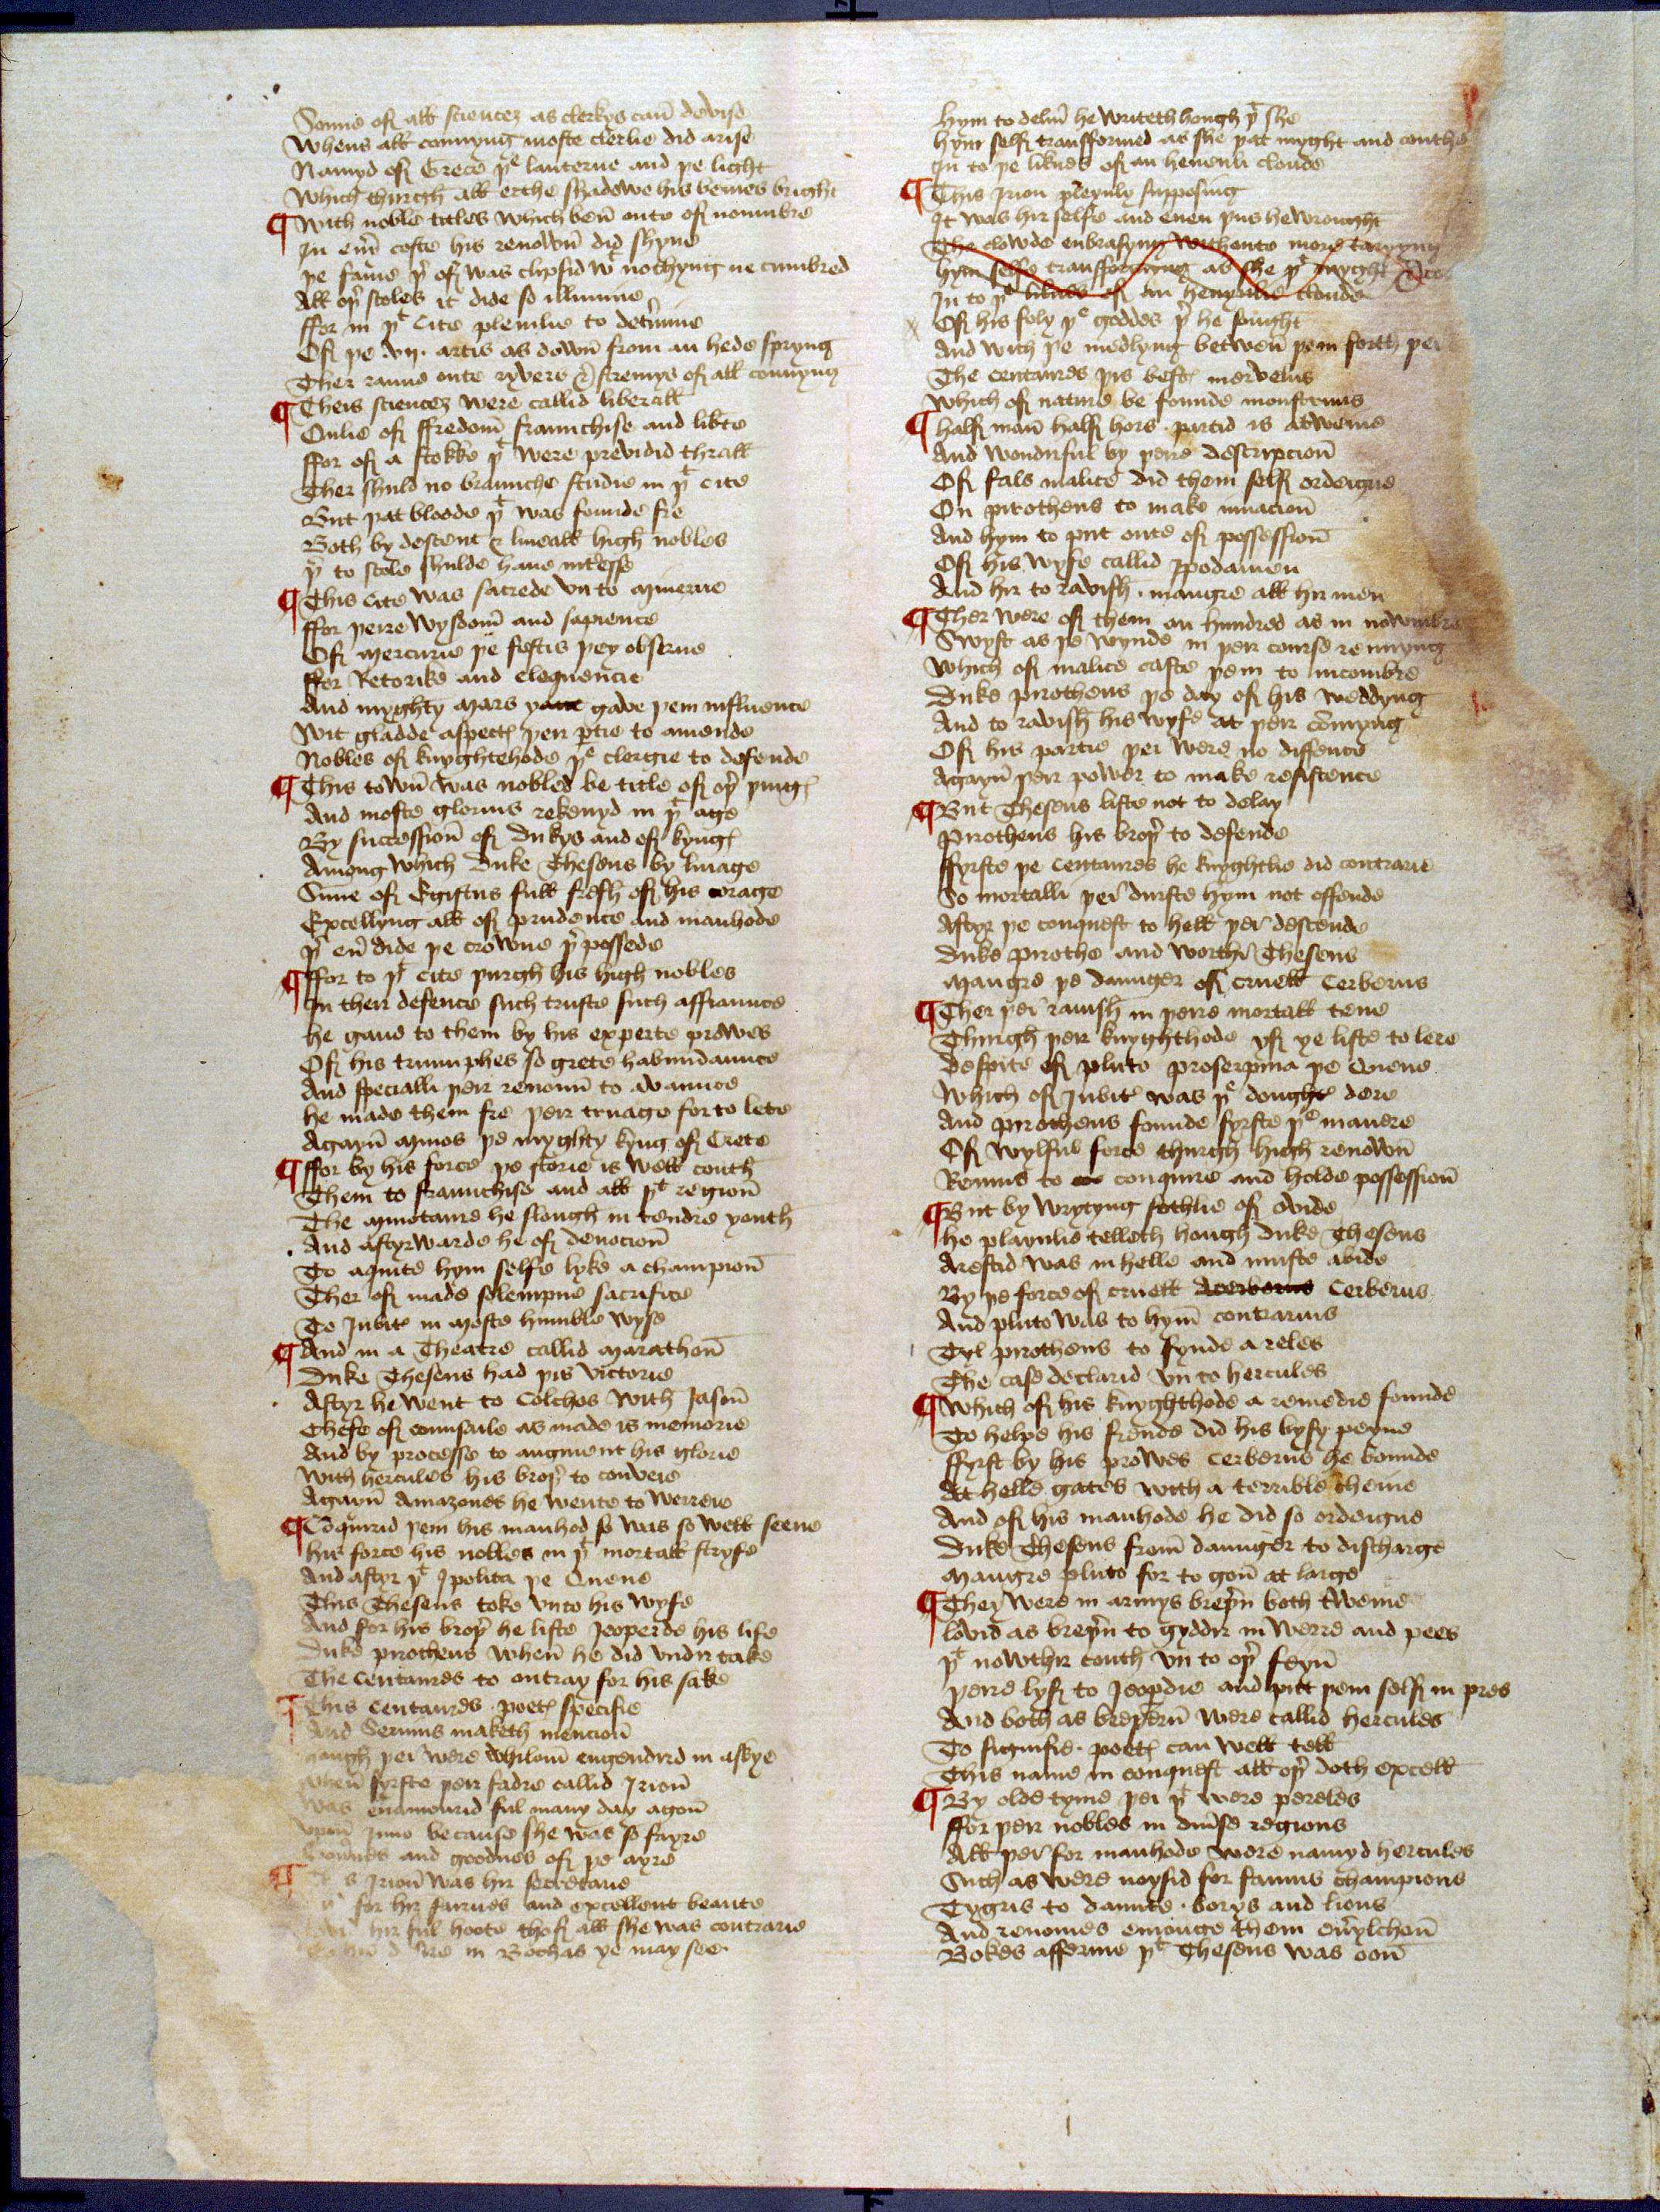 Sonne of all sciencez as clerkys can devise
Whens all connyng moste clerlie did arise
Namyd of Grece þe lanterne and þe light
Which thurgh all erthe shadowe his bemes bright
¶ With noble titles which ben oute of noumbre
In eu͛i coste his renown did shyne
þe fame þ͛ of was clipsid wt nothyng ne cumbred
All oþ͛ scoles it dide so illumine
ffor in þt Cite plenilie to det͛mine
Of þe .vij. artis as down from an hede spryng
Ther ranne oute ryvers & stremys of all connyng
¶ Theis sciencez were callid liberall
Onlie of ffredom fraunchise and lib͛te
ffor of a stokke þt were previdid thrall
Ther shuld no braunche studie in þt cite
But þat bloode þt was founde fre
Both by descent & lineall high nobles
þ͛ to scole shulde haue int͛esse
¶ This Cite was sacrede vn to Minerue
ffor þeire wysdom and sapience
Of Mercurie þe festis þey obserue
ffor Retorike and eloquencie
And myghty Mars gave þem influence
Wit gladde aspectes þeir p͛tie to amende
Nobles of knyghtehode þe clergie to defende
¶ This town was nobled be title of oþ͛ þinges
And moste glorius rekenyd in þt age
By succession of Dukys and of kynges
Among which Duke Theseus by linage
Sone of Egistus full fresh of his corage
Excellyng all of prudence and manhode
þt eu͛ dide þe crowne þ͛ possede
¶ ffor to þt cite þurgh his high nobles
In their defence such truste such affiaunce
he gaue to them by his experte prowes
Of his triumphes so grete habundaunce
And specialli þeir renoun to avaunce
he made them fre þeir truage for to lete
Agayn Minos þe myghty kyng of Crete
¶ ffor by his force þe storie is well couth
Them to fraunchise and all þt region
The Minotaure he slough in tendre youth
And aftyrwarde he of deuocion
To aquite hym selfe lyke a champion
Ther of made solempne sacrifice
To Jubit͛ in moste humble wyse
¶ And in a Theatre callid Marathon
Duke Theseus had þis victorie
Aftyr he went to Colchos with Jason
Chefe of counsaile as made is memorie
And by processe to augment his glorie
With hercules his broþ͛ to conveie
Agayn Amazones he wente to werreie
¶ Coquirid þem his manhod so was so well seene
his force his nobles in þt mortall stryfe
And aftyr þt Ipolita þe Quene
This Theseus toke vnto his wyfe
And for his broþ͛ he liste Jeoperde his life
Duke pirotheus when he did vndir take
The Centaures to outray for his sake
¶ This Centaures . poetes specifie
And Seruius maketh mencion
hough þei were whilom engendrid in a skye
when fyrste þeir fadre callid Ixion
was enamourid ful many day agon
vpon Juno because she was so fayre
and goodnes of þe ayre
¶ Ixion was hir secretarie
for hir fairnes and excellent beaute
hir ful hoote thof all she was contrarie
in Bochas ye may see.
hym to delu͛ he writeth hough þt she
hym self transformed as she þat myght and couthe
In to þe liknes of an heuenli cloude
¶ This Ixion pleynly supposing
It was hir selfe and euen þus he wrought
The clowde enbrasyng withoute more taryyng
hym selfe transformyng as she þt myght & cou
In to þe liknes of an heuynlie cloude
Of his foly þe goddes þ͛ he sought
And with þe medlyng betwen þem forth þei
The Centaures þis bestes mervelus
which of nature be founde monstruus
¶ half man half hors . partid is atweine
And wondirful by þeire descripcion
Of fals malice did them self ordeigne
On pirotheus to make inuacion
And hym to put oute of possession
Of his wyfe callid Ipodamen
And hir to ravish . maugre all hir men
¶ Ther were of them an hundred as in nowmbre
Swyft as þe wynde in þeir course rennyng
Which of malice caste þem to incombre
Duke pirotheus þe day of his weddyng
And to ravish his wyfe at þeir comyng
Of his partie þei were no diffence
Agayn þeir power to make resistence
¶ But Theseus liste not to delay
Pirotheus his broþ͛ to defende
ffyrste þe Centaures he knyghtlie did contrarie
So mortalli þei durste hym not offende
Aftyr þe conquest to hell þei descende
Duke pirothe and worthi Theseus
Maugre þe daunger of cruell Cerberus
¶ Ther þei ravish in þeire mortall tene
Thurgh þeir knyghthode yf ye liste to lere
Despite of Pluto Proserpina þe Quene
Which of Jubit͛ was þe dought͛ dere
And pirotheus founde fyrste þe manere
Of wylful force thurgh high renown
Renuis to conquire and holde possession
¶ But by wrytyng sothlie of Ovide
he playnlie telleth hough duke Theseus
Arestid was in helle and muste abide
By þe force of cruell Acerberus Cerberus
And pluto was to hym contrarius
Tyl pirotheus to fynde a reles
The case declarid vn to hercules
¶ Which of his knyghthode a remedie founde
To helpe his frende did his bysy peyne
ffyrst by his prowes Cerberus he bounde
At helle gates with a terrible cheine
And of his manhode he did so ordeigne
Duke Theseus from daunger to discharge
Maugre pluto for to gon at large
¶ They were in armys breþ͛n both tweine
lovid as breþ͛n to gyddir in werre and pees
þt nowthir couth vn to oþ͛ feyn
þeire lyf to Jeop͛die and put þem self in pres
And both as breþern were callid hercules
To signifie . poetes can well tell
This name in conquest all oþ͛ doth excell
¶ By olde tyme þei þt were pereles
ffor þeir nobles in diu͛se regions
All þei for manhode were namyd hercules
Such as were noysid for famus champions
Tygris to daunte . borys and lions
And renomes emonge them eu͛ylchon
Bokes afferme þt Theseus was oon